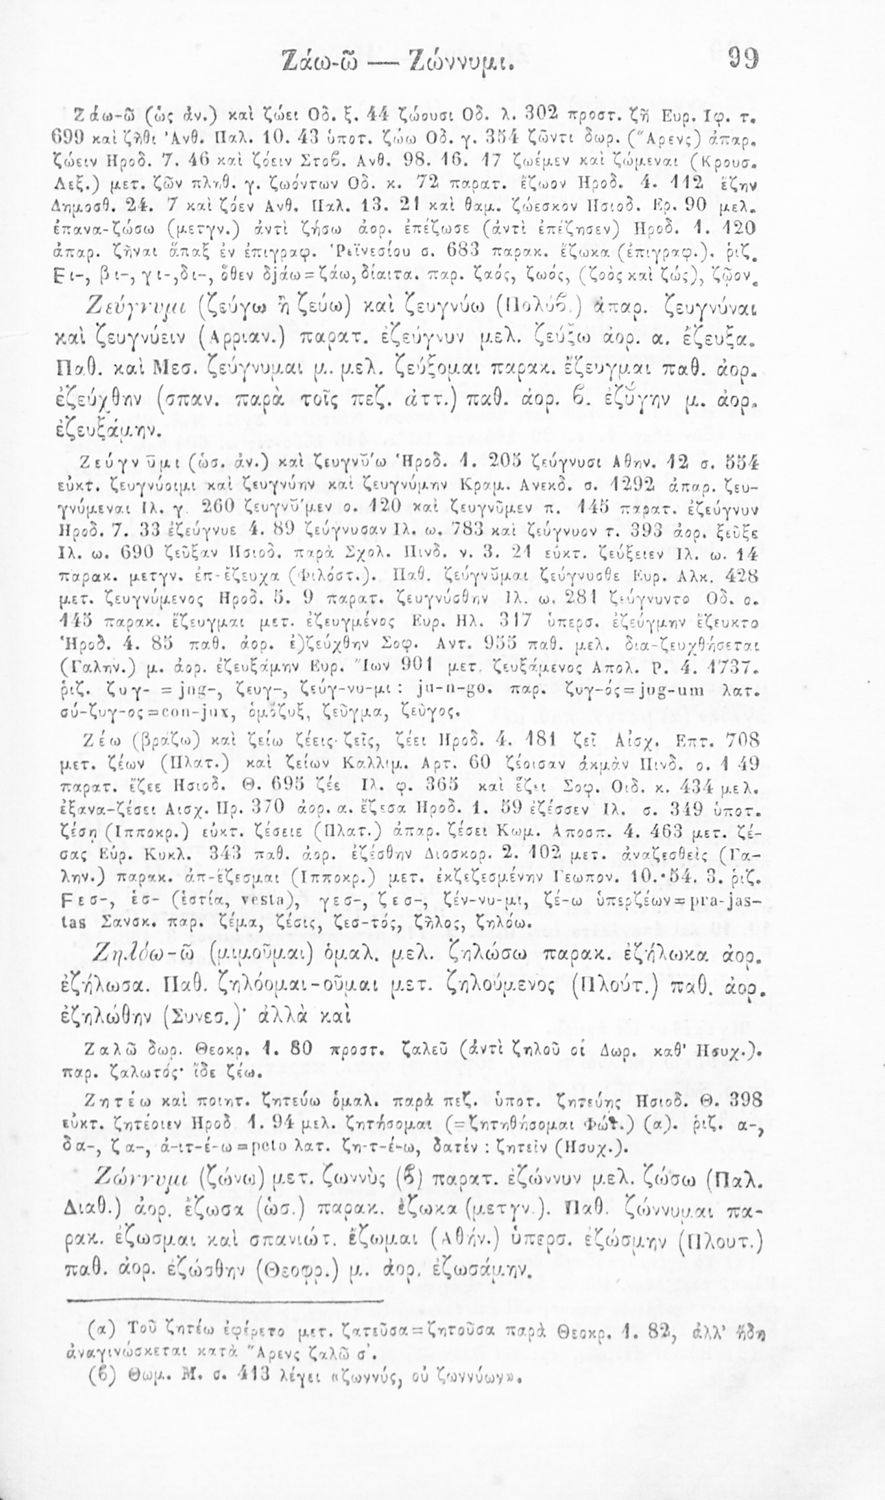 Ζάω-ῶ — Ζώννυμι. 99
Ζάω-ῶ (ὡς ἀν.) καὶ ζώει Οδ. ξ. 44 ζώουσι Οδ. λ. 302 προστ. ζῆ Ευρ. Ιφ. τ.
699 καὶ ζῆθι Ἀνθ. Παλ. 10. 43 ὑποτ. ζώω Οδ. γ. 354 ζῶντι δωρ. (Ἄρενς) ἀπαρ.
ζώειν Ηροδ. 7. 46 καὶ ζόειν Στοβ. Ανθ. 98. 16. 17 ζωέμεν καὶ ζώμεναι (Κρουσ.
Λεξ.) μετ. ζῶν πληθ. γ. ζωόντων Οδ. κ. 72 παρατ. ἔζωον Ηροδ. 4. 112 ἔζην
Δημοσθ. 24. 7 καὶ ζόεν Ανθ. Παλ. 13. 21 καὶ θαμ. ζώεσκον Ησιοδ. Ερ. 90 μελ.
ἐπανα-ζώσω (μετγν.) ἀντὶ ζήσω ἀορ. ἐπέζωσε (ἀντὶ ἐπέζησεν) Ηροδ. 1. 120
ἀπαρ. ζῆναι ἅπαξ ἐν ἐπιγραφ. Ῥεϊνεσίου σ. 683 παρακ. ἔζωκα (ἐπιγραφ.). ῥιζ.
Ϝι-, βι-, γι-, δι-, ὅθεν δjάω=ζάω, δίαιτα. παρ. ζαός, ζωός, (ζοὸς καὶ ζώς), ζῷον.
Ζεύγνυμι (ζεύγω ἢ ζεύω) καὶ ζευγνύω (Πολύβ.) ἀπαρ. ζευγνύναι
καὶ ζευγνύειν (Αρριαν.) παρατ. ἐζεύγνυν μελ. ζεύξω ἀορ. α. ἔζευξα.
Παθ. καὶ Μεσ. ζεύγνυμαι μ. μελ. ζεύξομαι παρακ. ἔζευγμαι παθ. ἀορ.
ἐζεύχθην (σπαν. παρὰ τοῖς πεζ. ἀττ.) παθ. ἀορ. β. ἐζύγην μ. ἀορ.
ἐζευξάμην.
Ζεύγνῡμι (ὡσ. ἀν.) καὶ ζευγνῡ́ω Ἡροδ. 1. 205 ζεύγνυσι Αθην. 12 σ. 554
εὐκτ. ζευγνύοιμι καὶ ζευγνύην καὶ ζευγνύμην Κραμ. Ανεκδ. σ. 1292 ἀπαρ. ζευ-
γνύμεναι Ιλ. γ. 260 ζευγνῡ́μεν ο. 120 καὶ ζευγνῦμεν π. 145 παρατ. ἐζεύγνυν
Ηροδ. 7. 33 ἐζεύγνυε 4. 89 ζεύγνυσαν Ιλ. ω. 783 καὶ ζεύγνυον τ. 393 ἀορ. ξεῦξε
Ιλ. ω. 690 ζεῦξαν Ησιοδ. παρὰ Σχολ. Πινδ. ν. 3. 21 εὐκτ. ζεύξειεν Ιλ. ω. 14
παρακ. μετγν. ἐπ-έζευχα (Φιλόστ.). Παθ. ζεύγνῡμαι ζεύγνυσθε Ευρ. Αλκ. 428
μετ. ζευγνύμενος Ηροδ. 5. 9 παρατ. ζευγνύσθην Ιλ. ω. 281 ζεύγνυντο Οδ. ο.
145 παρακ. ἔζευγμαι μετ. ἐζευγμένος Ευρ. Ηλ. 317 ὑπερσ. ἐζεύγμην ἔζευκτο
Ἡροδ. 4. 85 παθ. ἀορ. ἐ)ζεύχθην Σοφ. Αντ. 955 παθ. μελ. δια-ζευχθήσεται
(Γαλην.) μ. ἀορ. ἐζευξάμην Ευρ. Ἴων 901 μετ. ζευξάμενος Απολ. Ρ. 4. 1737.
ῥιζ. ζυγ- = jug-, ζευγ-, ζεύγ-νυ-μι : ju-n-go. παρ. ζυγ-ός=jug-um λατ.
σύ-ζυγ-ος=con-jux, ὁμόζυξ, ζεῦγμα, ζεῦγος.
Ζέω (βράζω) καὶ ζείω ζέεις-ζεῖς, ζέει Ηροδ. 4. 181 ζεῖ Αἰσχ. Επτ. 708
μετ. ζέων (Πλατ.) καὶ ζείων Καλλιμ. Αρτ. 60 ζέοισαν ἀκμὰν Πινδ. ο. 1 49
παρατ. ἔζεε Ησιοδ. Θ. 695 ζέε Ιλ. φ. 365 καὶ ἔζει Σοφ. Οιδ. κ. 434 μελ.
ἐξανα-ζέσει Αισχ. Πρ. 370 ἀορ. α. ἔζεσα Ηροδ. 1. 59 ἐζέσσεν Ιλ. σ. 349 ὑποτ.
ζέσῃ (Ιπποκρ.) εὐκτ. ζέσειε (Πλατ.) ἀπαρ. ζέσει Κωμ. Αποσπ. 4. 463 μετ. ζέ-
σας Εύρ. Κυκλ. 343 παθ. ἀορ. ἐζέσθην Διοσκορ. 2. 102 μετ. ἀναζεσθεὶς (Γα-
λην.) παρακ. ἀπ-έζεσμαι (Ιπποκρ.) μετ. ἐκζεζεσμένην Γεωπον. 10. 54. 3. ῥιζ.
Ϝεσ-, ἑσ- (ἑστία, vesta), γεσ-, ζεσ-, ζέν-νυ-μι, ζέ-ω ὑπερζέων=pra-jas-
tas Σανσκ. παρ. ζέμα, ζέσις, ζεσ-τός, ζῆλος, ζηλόω.
Ζηλόω-ῶ (μιμοῦμαι) ὁμαλ. μελ. ζηλώσω παρακ. ἐζήλωκα ἀορ.
ἐζήλωσα. Παθ. ζηλόομαι-οῦμαι μετ. ζηλούμενος (Πλούτ.) παθ. ἀορ.
ἐζηλώθην (Συνεσ.)· ἀλλὰ καὶ
Ζαλῶ δωρ. Θεοκρ. 1. 80 προστ. ζαλεῦ (ἀντὶ ζηλοῦ οἱ Δωρ. καθ' Ησυχ.).
παρ. ζαλωτός· ἴδε ζέω.
Ζητέω καὶ ποιητ. ζητεύω ὁμαλ. παρὰ πεζ. ὑποτ. ζητεύῃς Ησιοδ. Θ. 398
εὐκτ. ζητέοιεν Ηροδ 1. 94 μελ. ζητήσομαι (=ζητηθήσομαι Φώτ.) (α). ῥιζ. α-,
δα-, ζα-, ἀ-ιτ-έ-ω=peto λατ. ζη-τ-έ-ω, δατέν : ζητεῖν (Ησυχ.).
Ζώννυμι (ζώνω) μετ. ζωννὺς (β) παρατ. ἐζώννυν μελ. ζώσω (Παλ.
Διαθ.) ἀορ. ἔζωσα (ὡσ.) παρακ. ἔζωκα (μετγν.). Παθ. ζώννυμαι πα-
ρακ. ἔζωσμαι καὶ σπανιώτ. ἔζωμαι (Αθήν.) ὑπερσ. ἐζώσμην (Πλουτ.)
παθ. ἀορ. ἐζώσθην (Θεοφρ.) μ. ἀορ. ἐζωσάμην.
(α) Τοῦ ζητέω ἐφέρετο μετ. ζατεῦσα=ζητοῦσα παρὰ Θεοκρ. 1. 82, ἀλλ' ἤδη
ἀναγινώσκεται κατὰ Ἄρενς ζαλῶ σ'.
(β) Θωμ. Μ. σ. 413 λέγει «ζωννύς, οὐ ζωννύων».